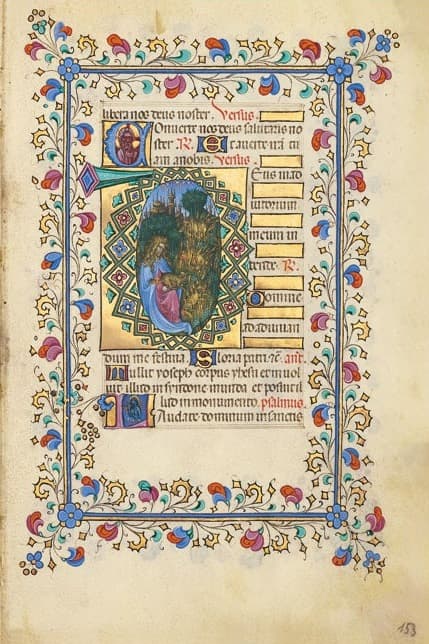 libera nos deus noster. Versus.
Conuerte nos deus salutaris no
ster. R. Et auerte irā tu
am a nobis. Versus.
Deus in ad
iutorium
meum in
tende. R.
Domine
ad adiuuan
dum me festina. Gloria patri ant.
yoseph corpus yhesu et inuol
uit illud in syndone munda et posuit il
lud in monumento. psalmus.
Laudate dominum in sanctis
153